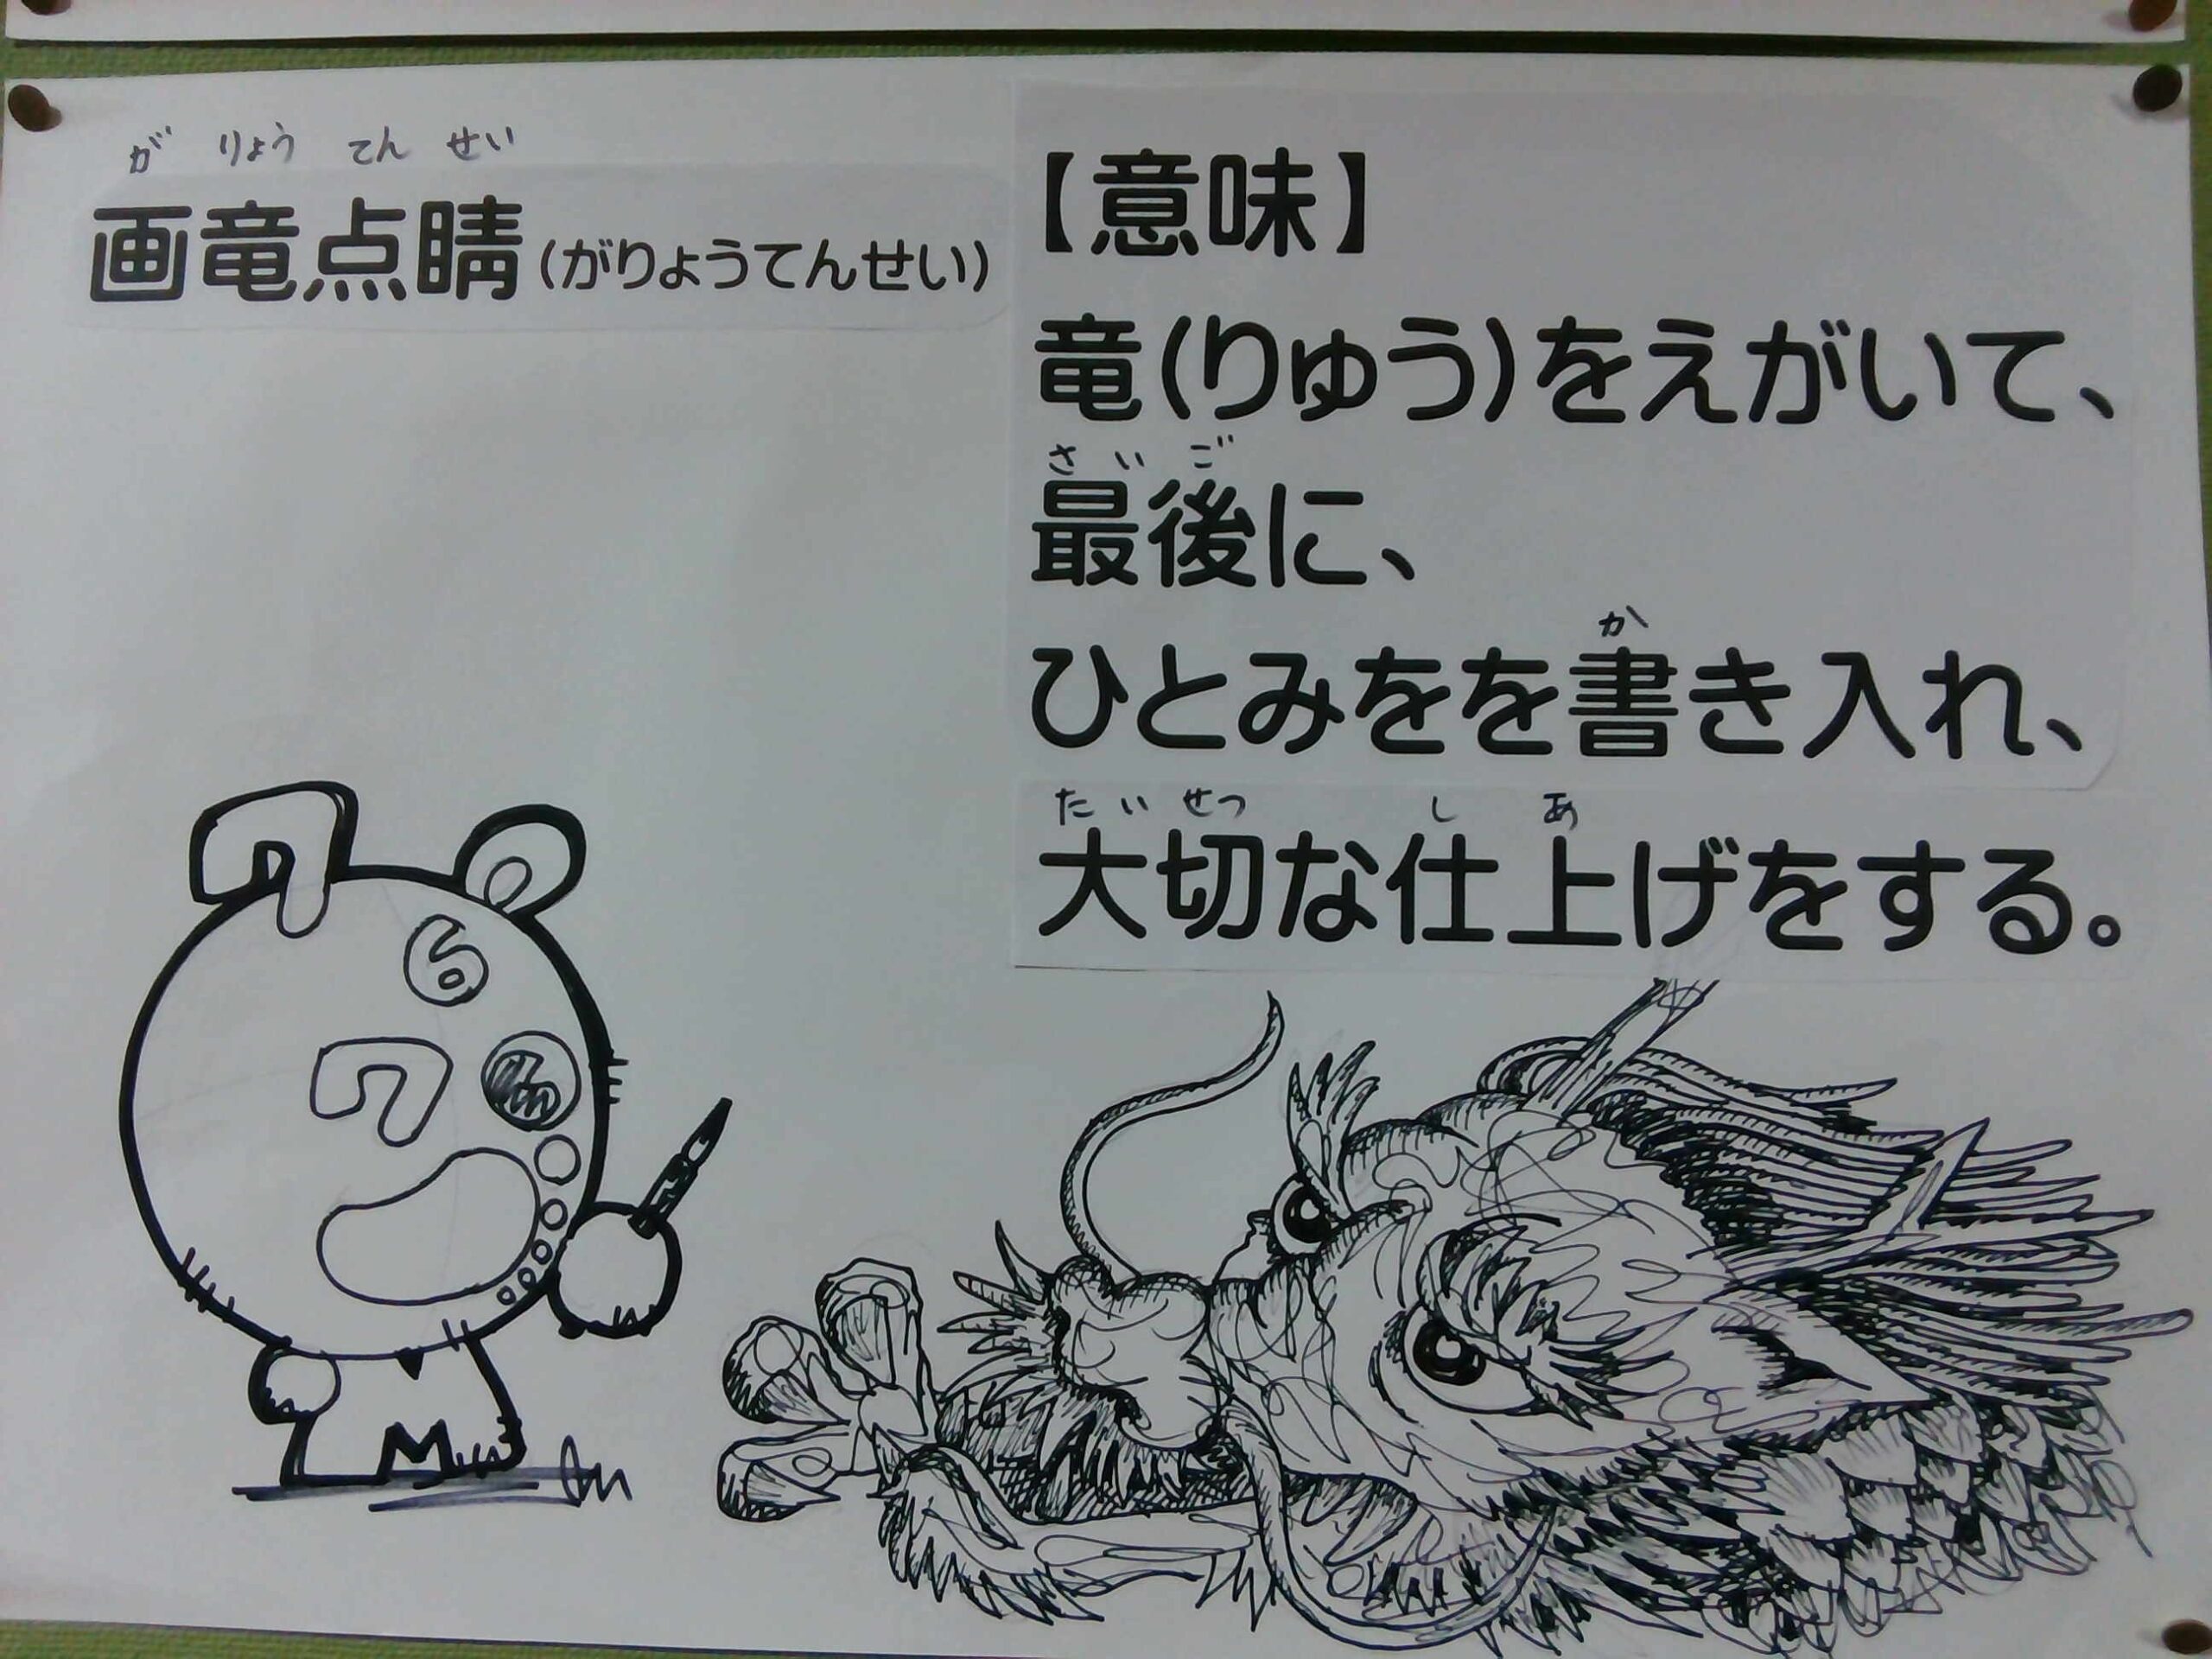 が りょう てん せい
画竜点睛(がりょうてんせい)
【意味】
竜(りゅう)をえがいて、
さいご
最後に、
か
ひとみをを書き入れ、
たいせつ し あ
大切な仕上げをする。
6
M